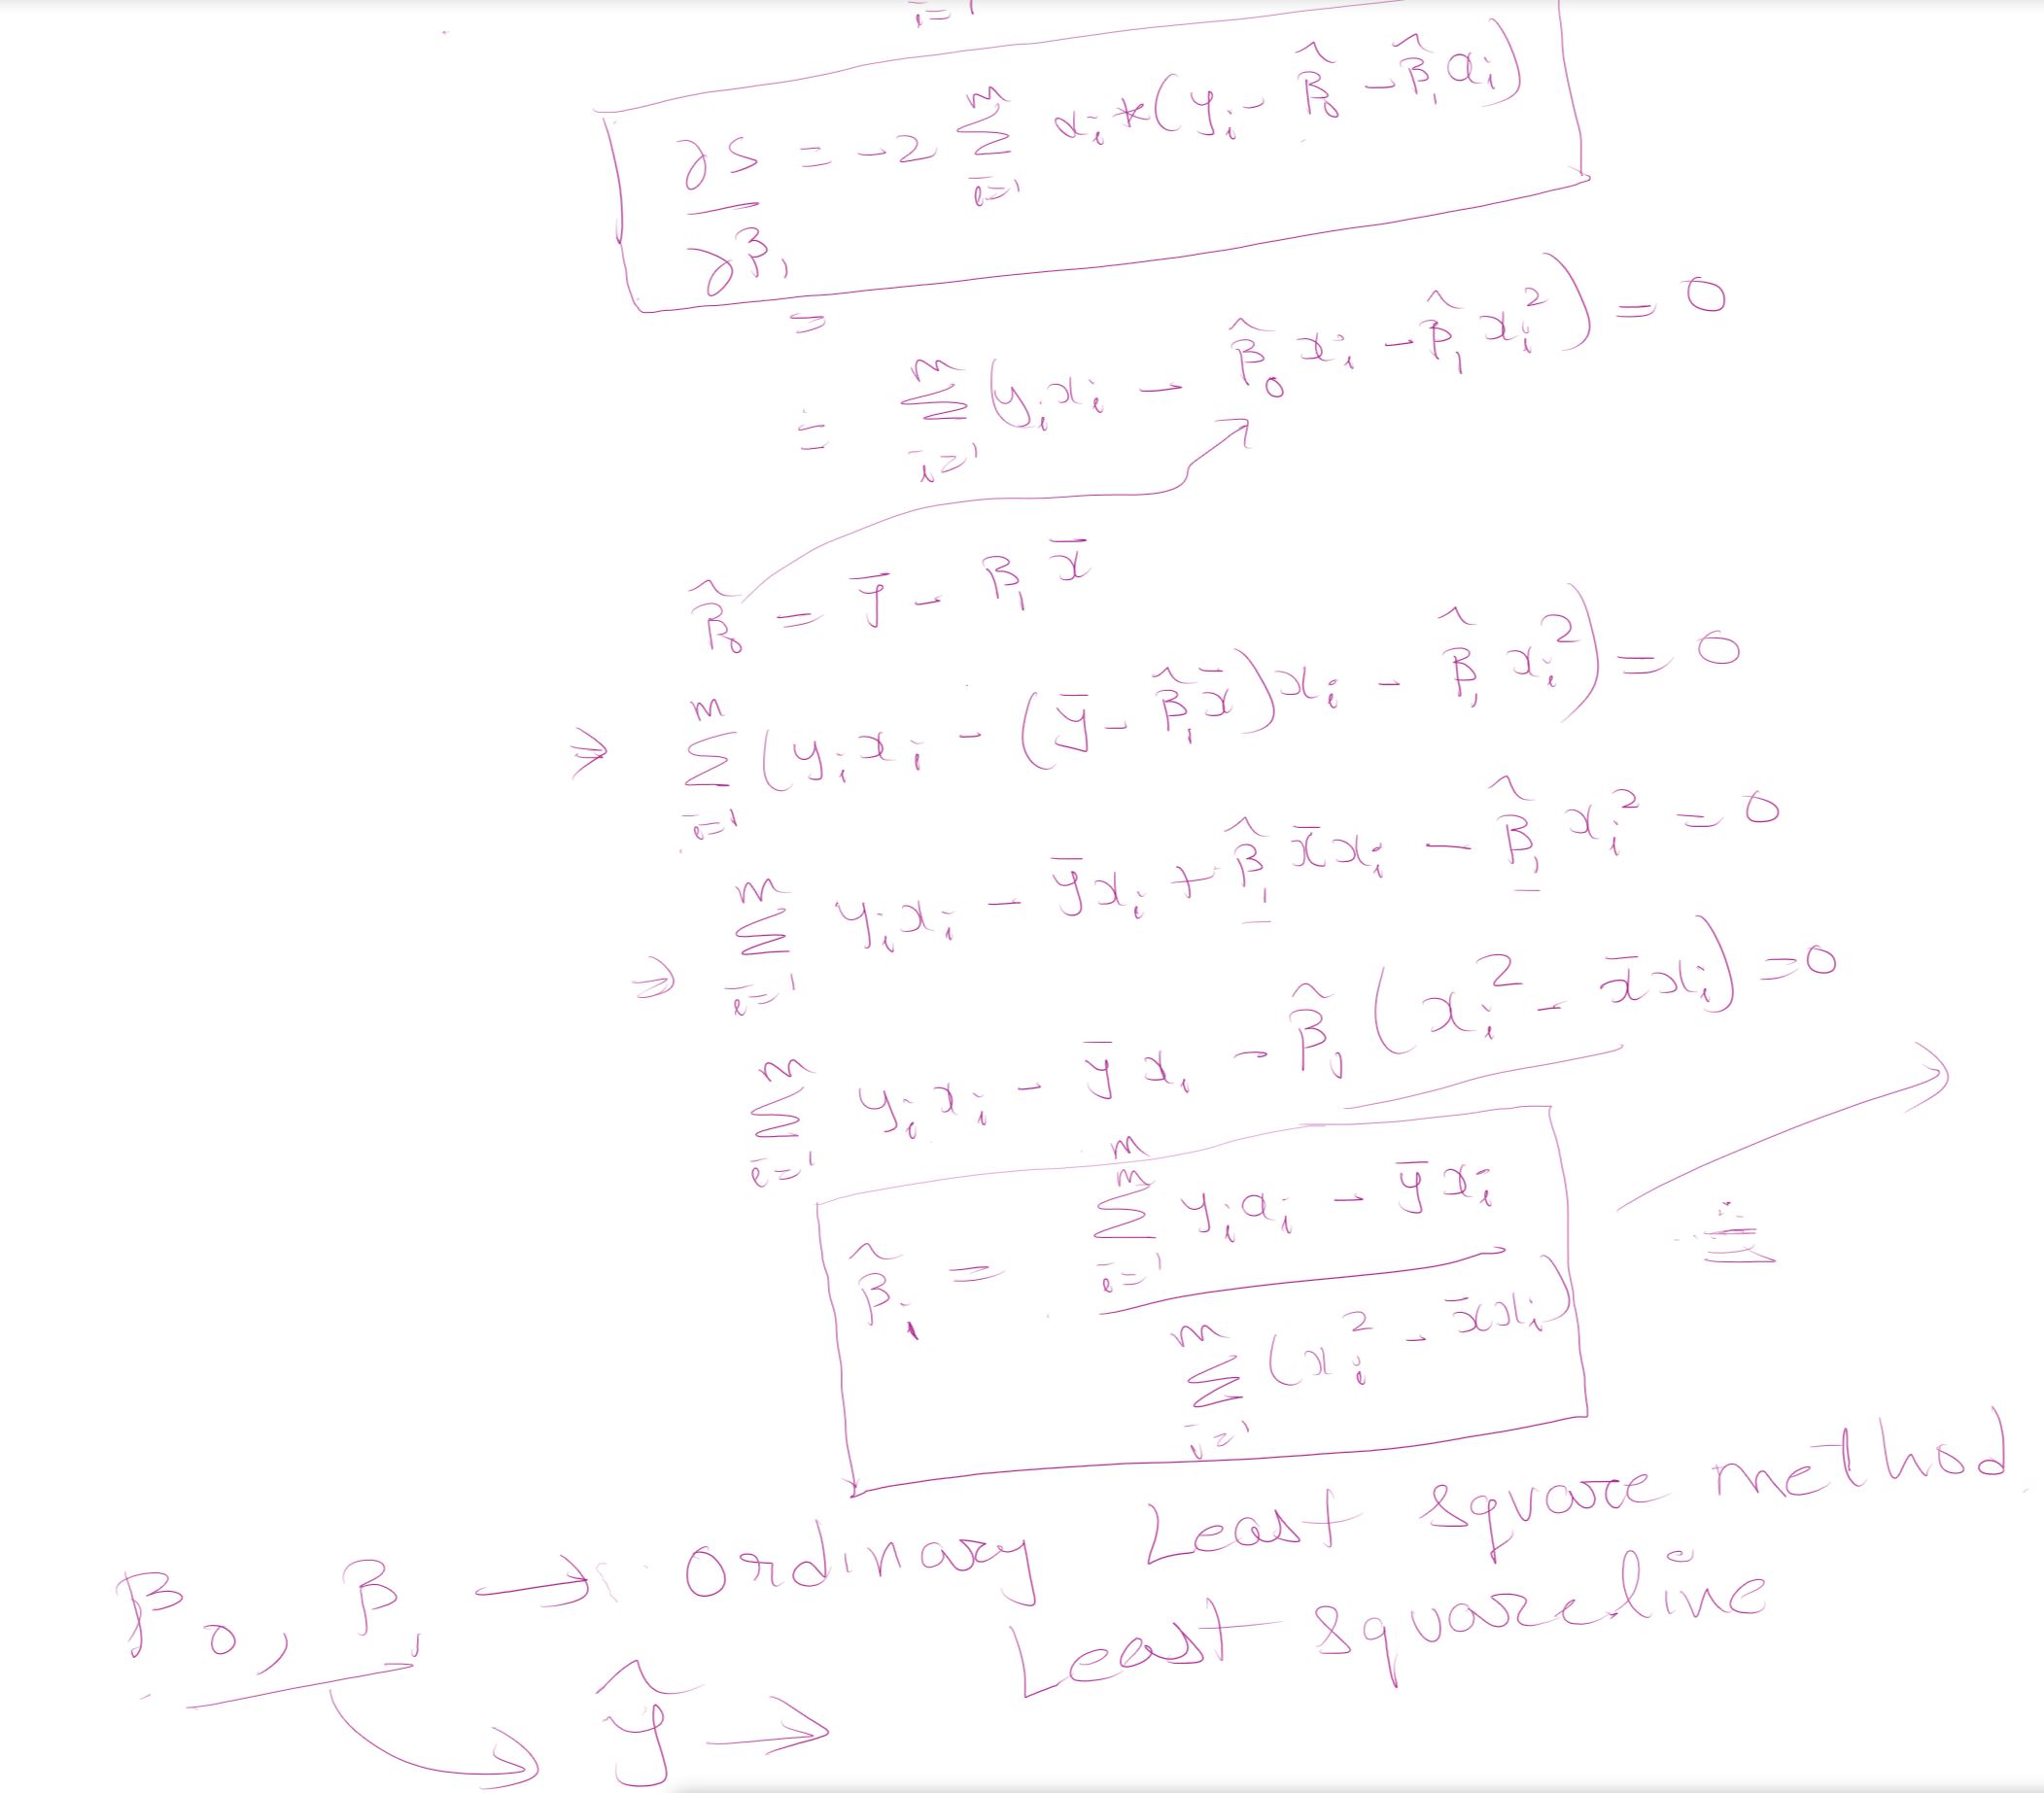 i=1
∂S/∂β₁ = -2 Σ_{i=1}^{n} x_i * (y_i - β̂₀ - β̂₁ x_i)
=
= Σ_{i=1}^{n} (y_i x_i - β̂₀ x_i - β̂₁ x_i²) = 0
β̂₀ = ȳ - β₁ x̄
⇒ Σ_{i=1}^{n} (y_i x_i - (ȳ - β̂₁ x̄) x_i - β̂₁ x_i²) = 0
⇒ Σ_{i=1}^{n} y_i x_i - ȳ x_i + β̂₁ x̄ x_i - β̂₁ x_i² = 0
Σ_{i=1}^{n} y_i x_i - ȳ x_i - β̂₁ (x_i² - x̄ x_i) = 0
β̂₁ = Σ_{i=1}^{n} y_i x_i - ȳ x_i / Σ_{i=1}^{n} (x_i² - x̄ x_i)
β₀, β₁ → Ordinary Least Square method
ŷ → Least square line